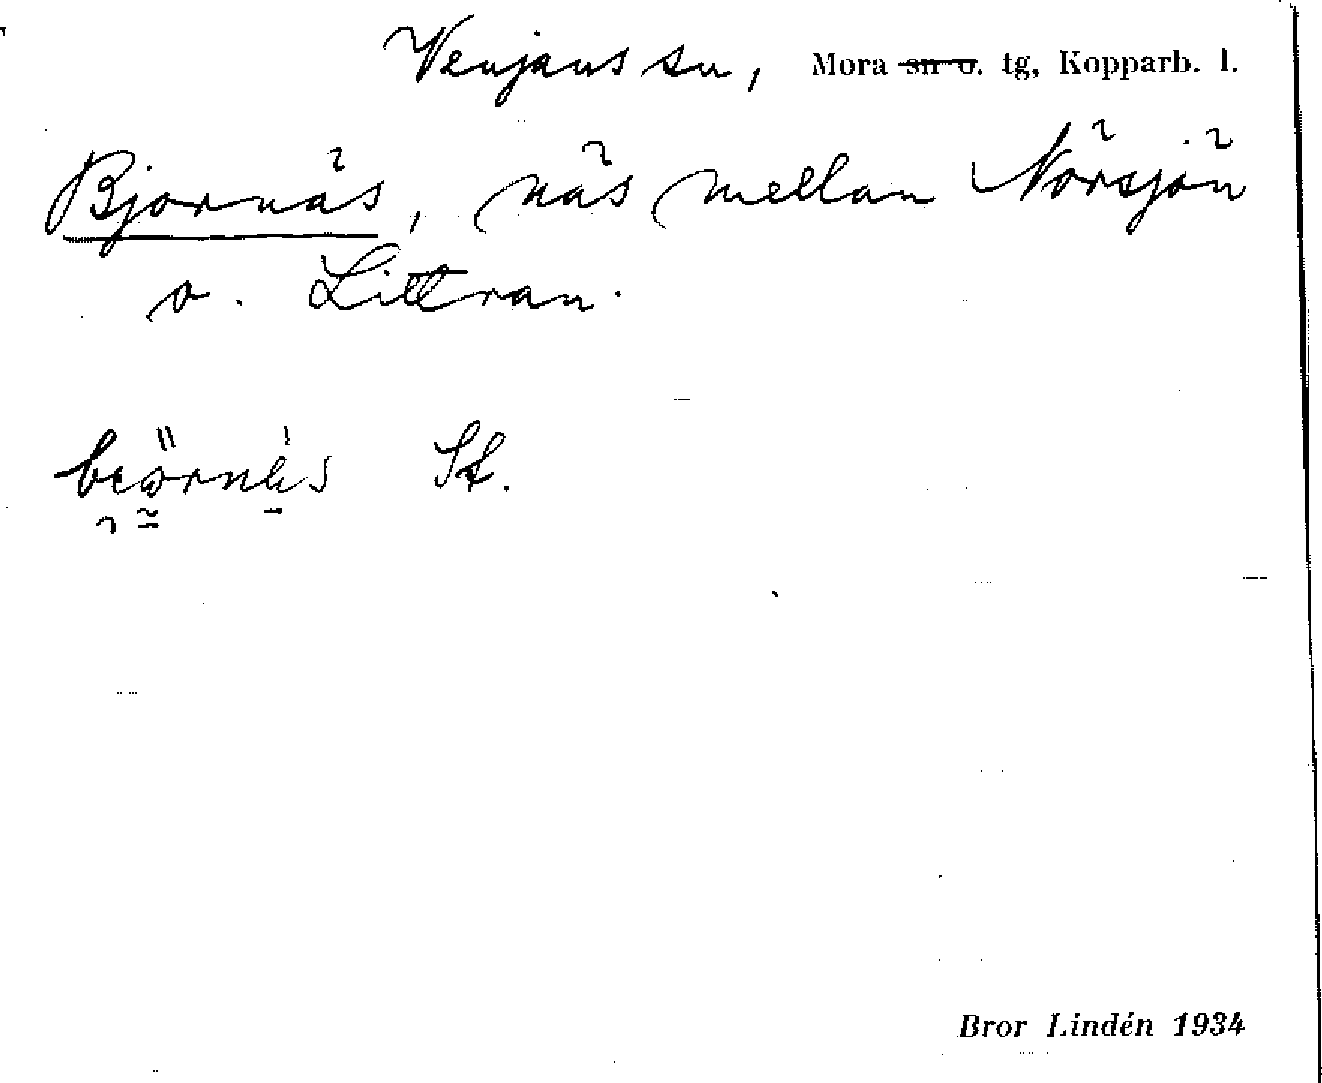 Venjans sn, Mora sn o. tg, Kopparb. l.
Bjornäs, näs mellan Nörsjön
o. Littran.
St.
Bror Lindén 1934